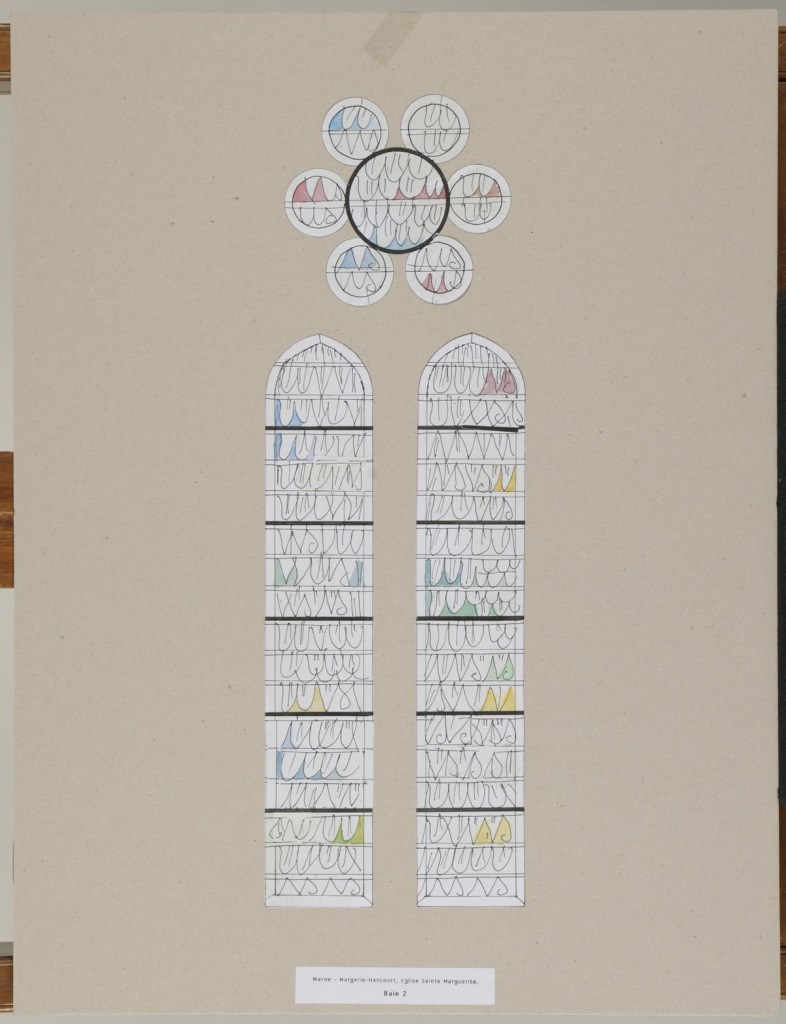 Marne - Margerie-Hancourt, Eglise Sainte Marguerite,
Baie 2